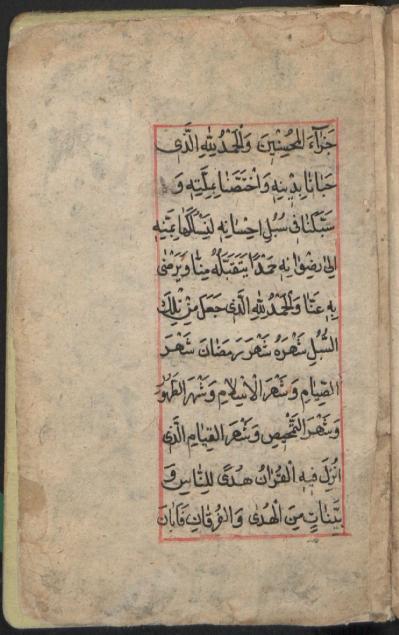 جَزَآءَ الْمُحْسِنِينَ وَالْحَمْدُ لِلّٰهِ الَّذِى
حَبَانَا بِدِينِهِ وَاخْتَصَّنَا بِمِلَّتِهِ وَ
سَبَّلَنَا فِى سُبُلِ اِحْسَانِهِ لِنَسْلُكَهَا بِمَنِّهِ
اِلٰى رِضْوَانِهِ حَمْدًا يَتَقَبَّلُهُ مِنَّا وَيَرْضٰى
بِهِ عَنَّا وَالْحَمْدُ لِلّٰهِ الَّذِى جَعَلَ مِنْ تِلْكَ
السُّبُلِ شَهْرَهُ شَهْرَ رَمَضَانَ شَهْرَ
الصِّيَامِ وَشَهْرَ الْاِسْلَامِ وَشَهْرَ الطَّهُورِ
وَشَهْرَ التَّمْحِيصِ وَشَهْرَ الْقِيَامِ الَّذِى
اُنْزِلَ فِيهِ الْقُرْاٰنُ هُدًى لِلنَّاسِ وَ
بَيِّنَاتٍ مِنَ الْهُدٰى وَالْفُرْقَانِ فَاَبَانَ